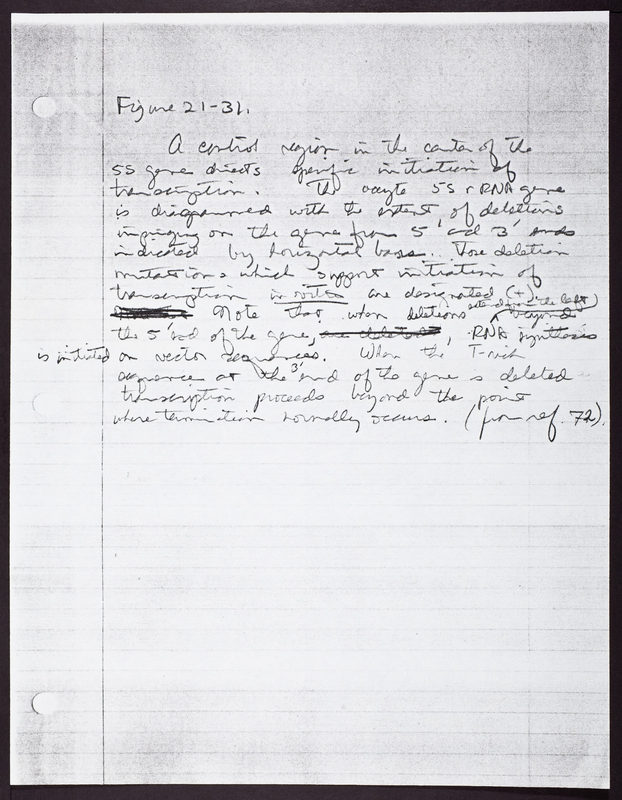 Figure 21-31.
A control region in the center of the
5S gene directs specific initiation of
transcription. The oocyte 5S rRNA gene
is diagrammed with the extent of deletions
impinging on the gene from 5' and 3' ends
indicated by horizontal bars. Those deletion
mutations which support initiation of
transcription in vitro are designated (+).
Note that when deletions extend to the left beyond
the 5' end of the gene, are deleted, RNA synthesis
is initiated on vector sequences. When the T-rich
sequence at the 3' end of the gene is deleted
transcription proceeds beyond the point
where termination normally occurs. (from ref. 72).